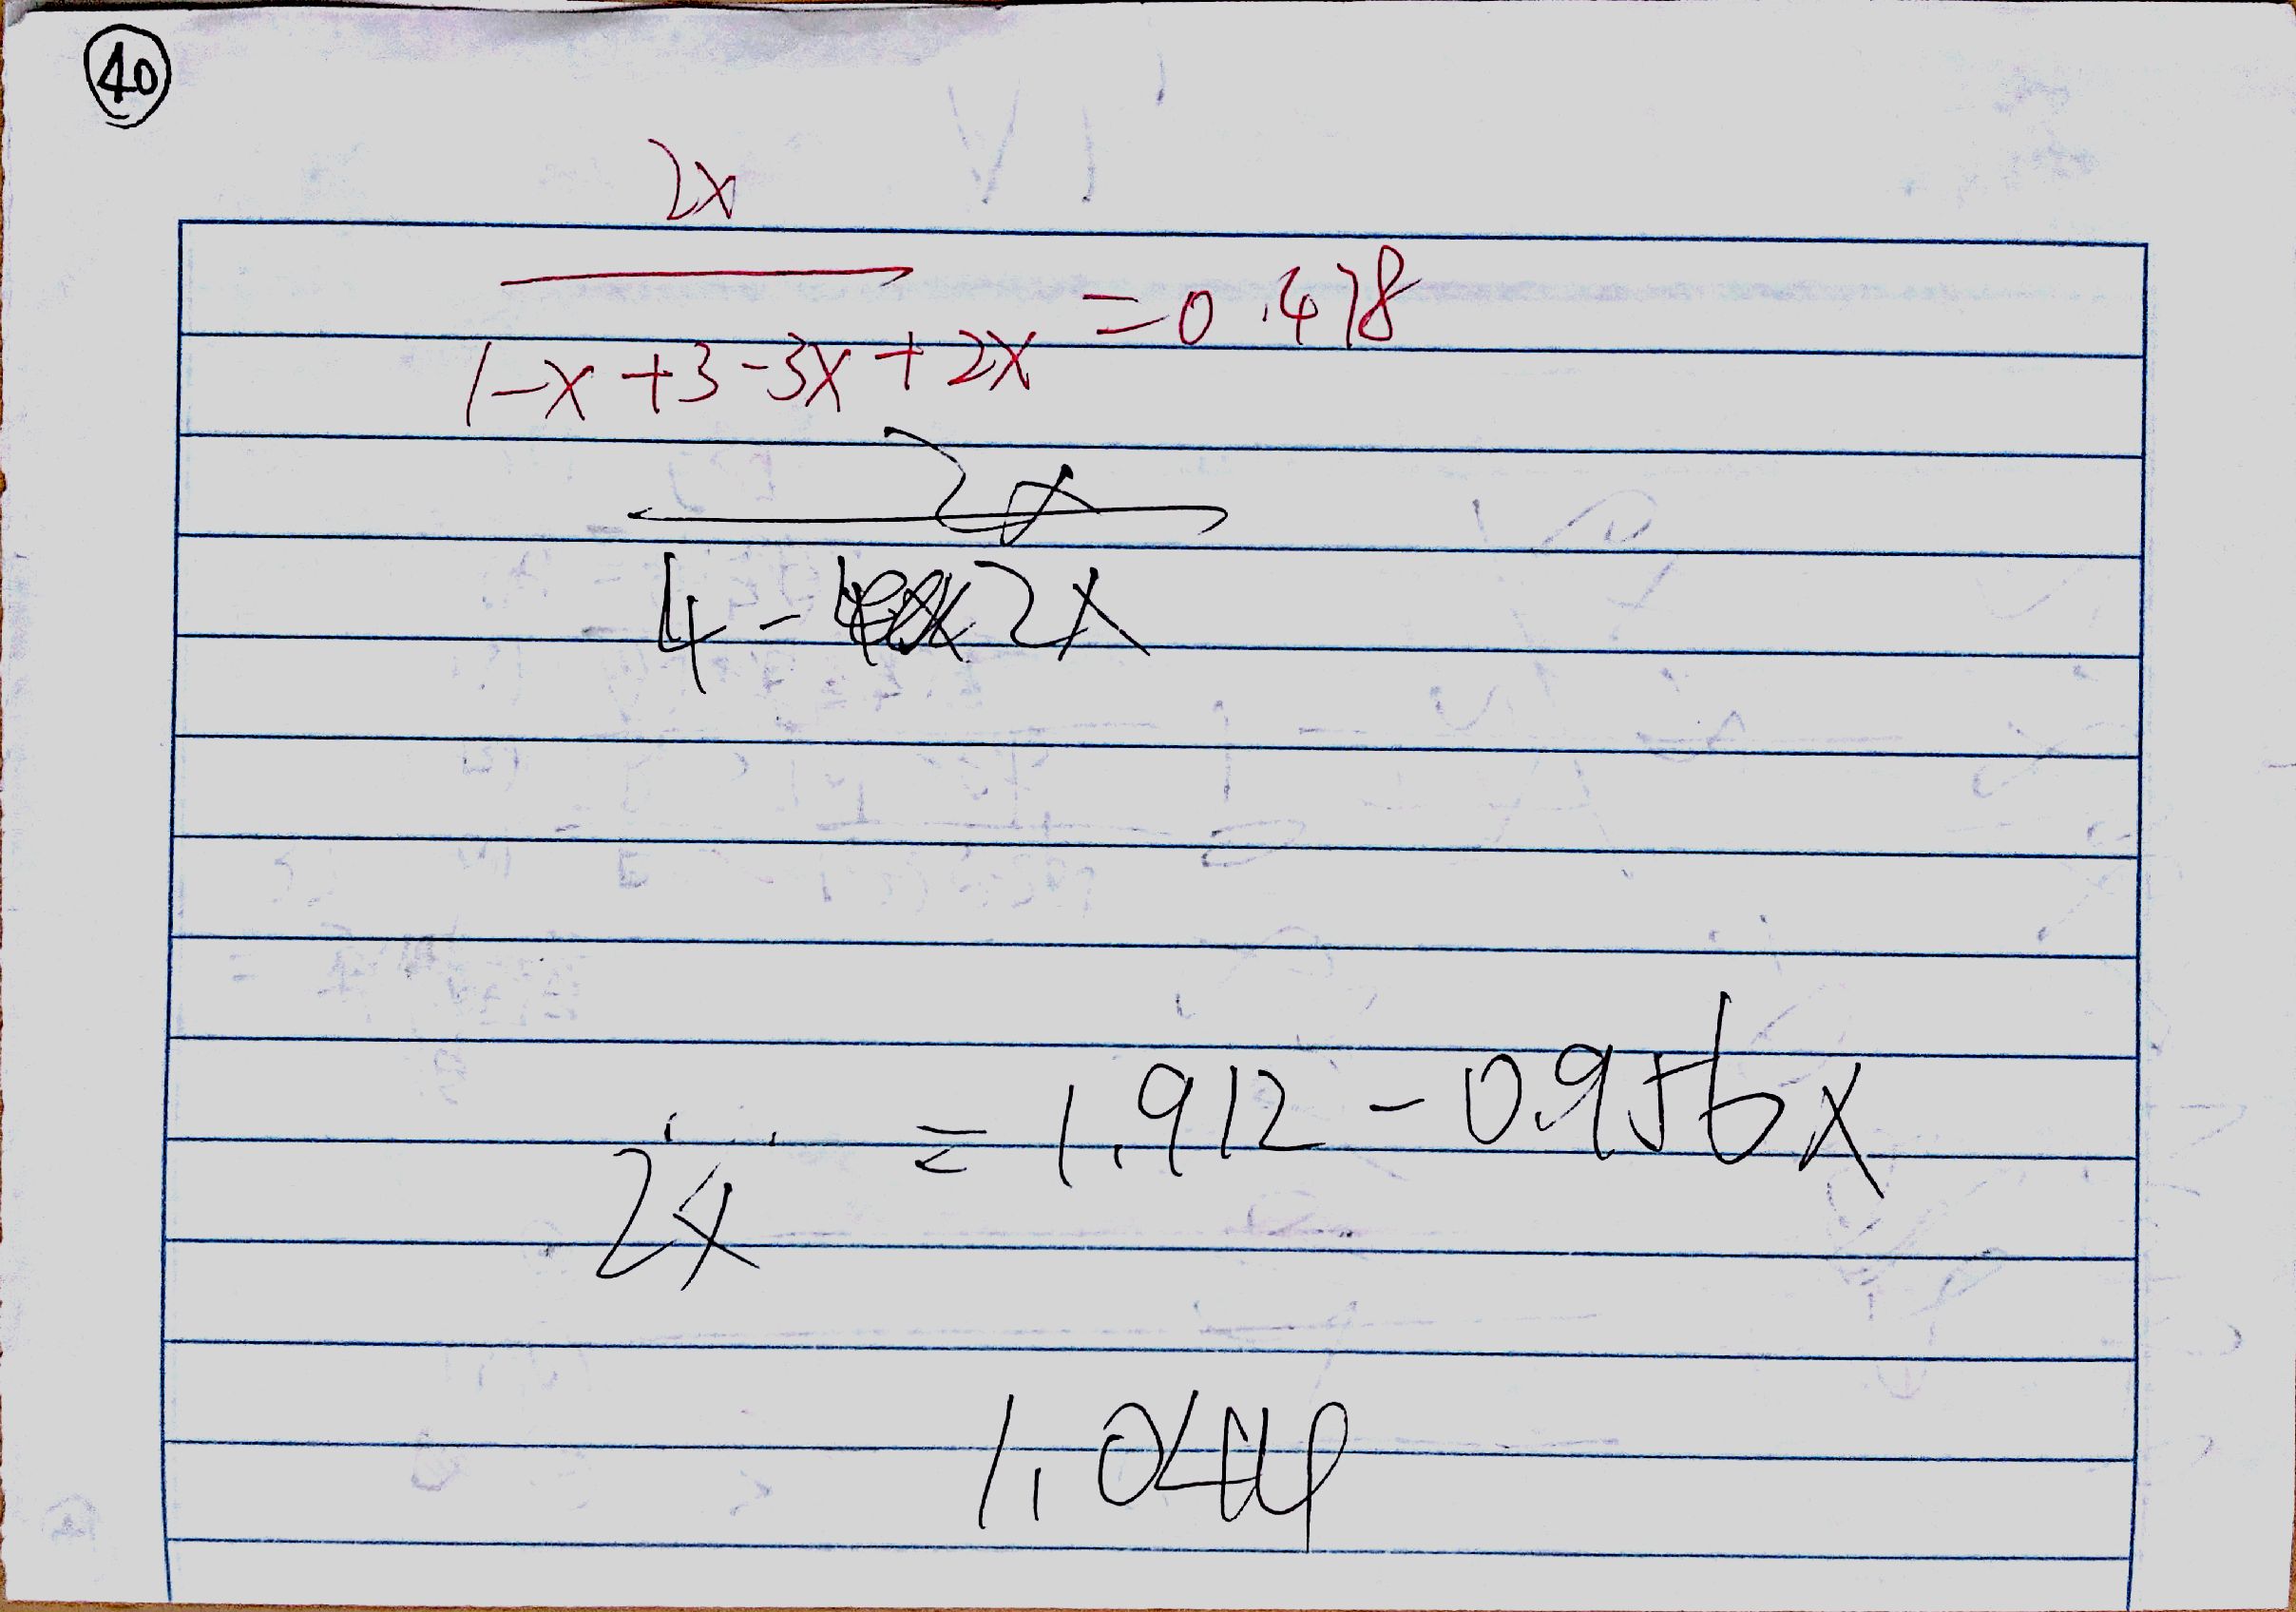 40
2x
1-x+3-3x+2x =0.478
2x
4-2x
2x = 1.912-0.956x
1.044